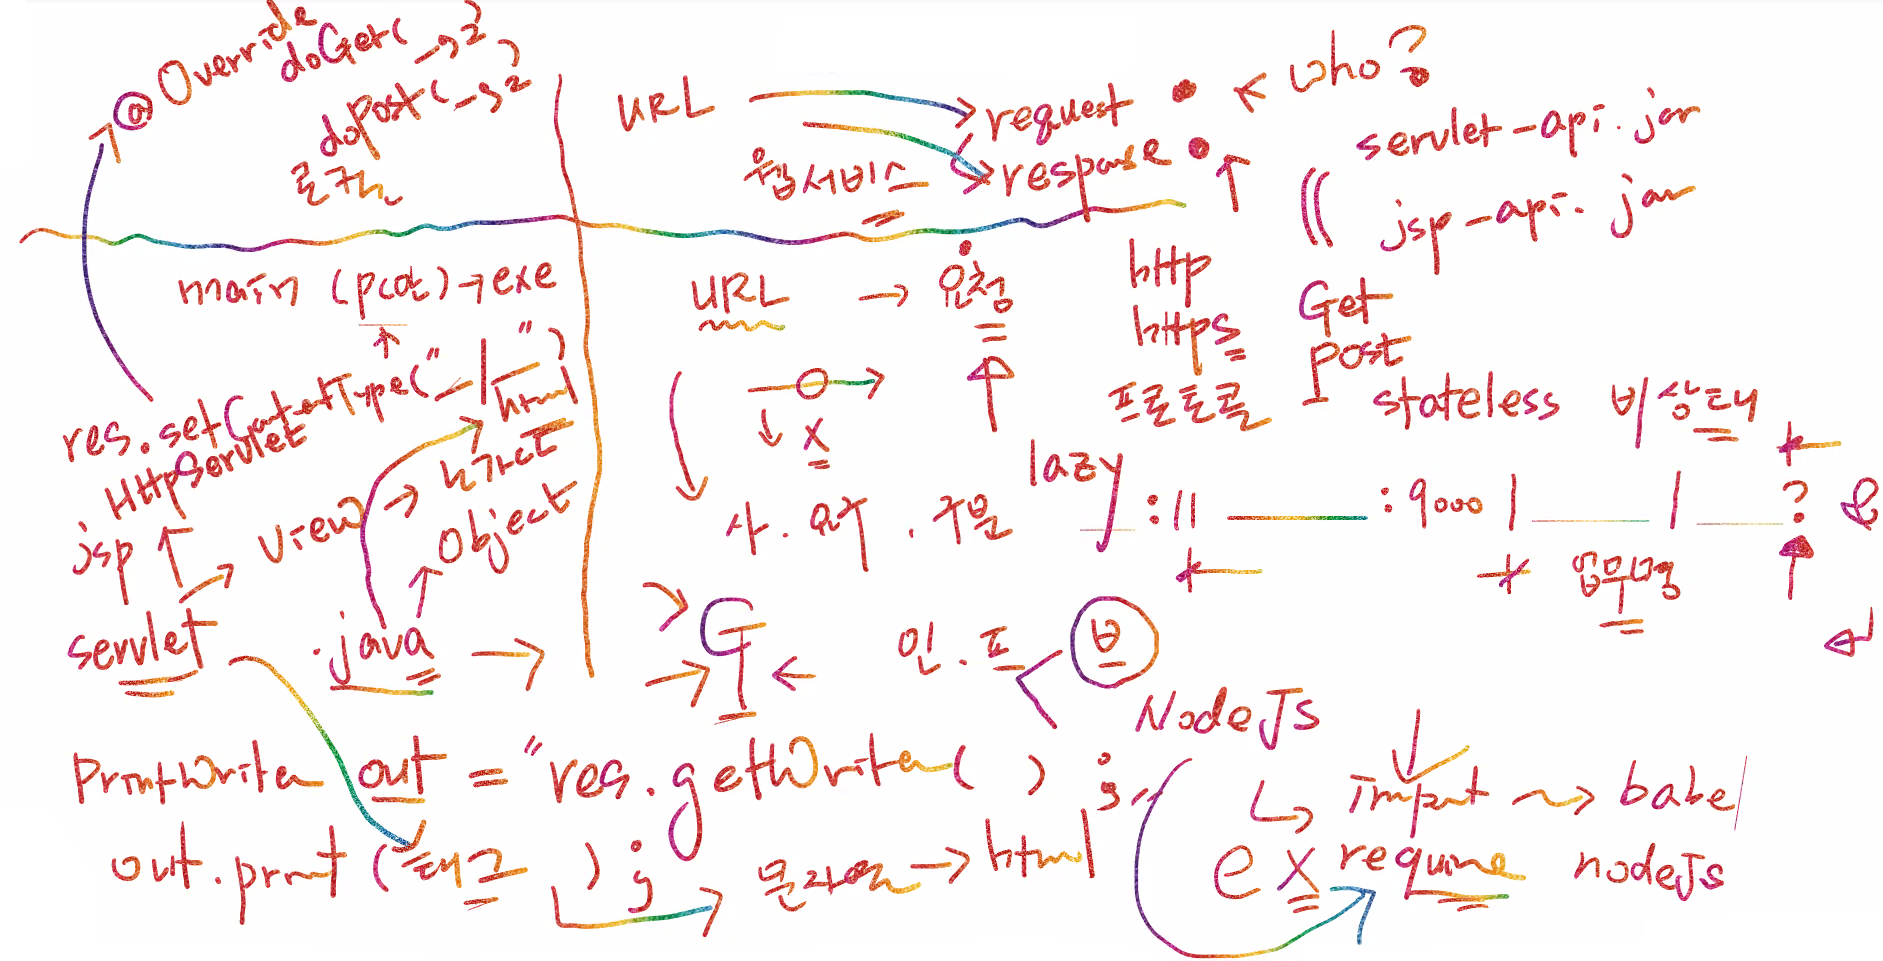 @Override
doGet( , )
doPost( , )
로직
URL
request
response
웹서비스
who?
servlet-api.jar
jsp-api.jar
main (pc란)→exe
URL → 요청
http
https
프로토콜
Get
post
stateless 비상태
res.setContentType(" / html")
HttpServlet
jsp
view →
Object
servlet
.java
x
lazy
:// : 9000 / / ? &
업무명
G
인.프
NodeJs
PrintWriter out = "res.getWriter( );"
out.print(태그 );
문자열 → html
import → babel
ex require nodeJs